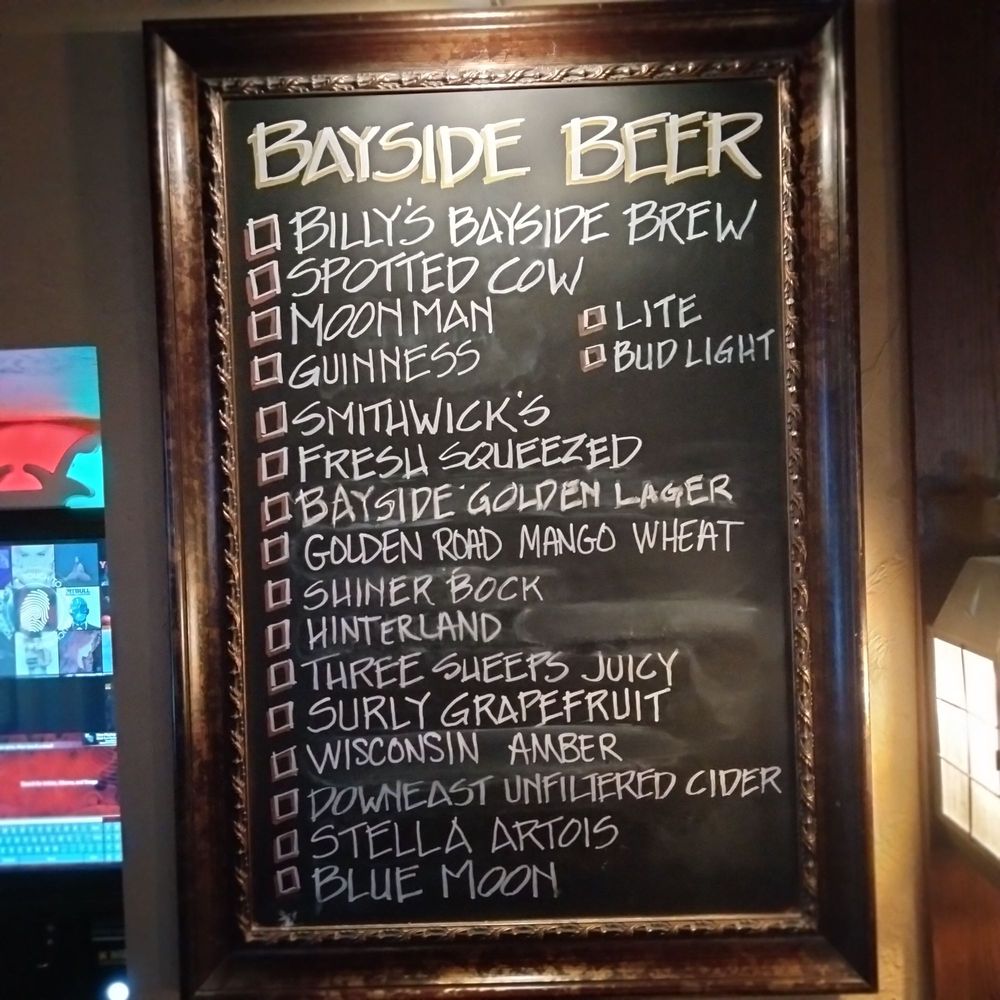 BAYSIDE BEER
BILLY'S BAYSIDE BREW
SPOTTED COW
MOON MAN
LITE
GUINNESS
BUD LIGHT
SMITHWICK'S
FRESH SQUEEZED
BAYSIDE GOLDEN LAGER
GOLDEN ROAD MANGO WHEAT
SHINER BOCK
HINTERLAND
THREE SHEEPS JUICY
SURLY GRAPEFRUIT
WISCONSIN AMBER
DOWNEAST UNFILTERED CIDER
STELLA ARTOIS
BLUE MOON
PITBULL